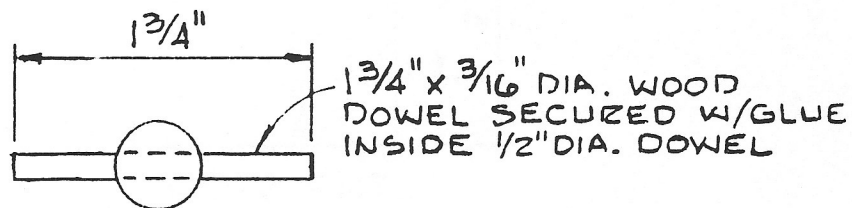 1 3/4"
1 3/4" x 3/16" DIA. WOOD
DOWEL SECURED W/GLUE
INSIDE 1/2" DIA. DOWEL